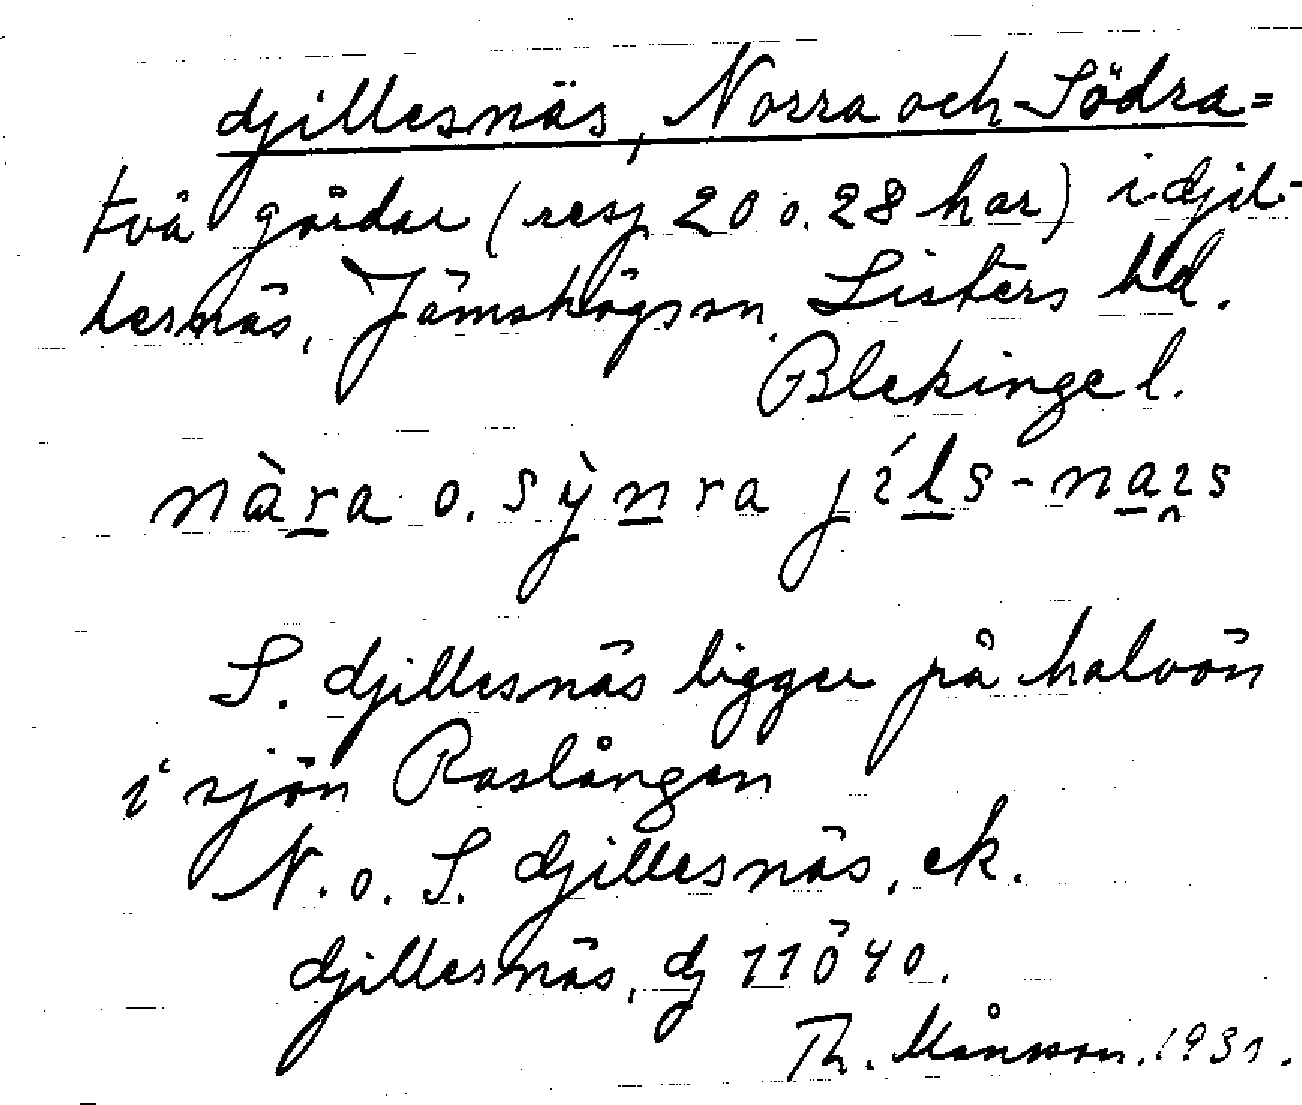 Gillesnäs, Norra och Södra =
två gårdar (resp 20 o. 28 har) i Gil-
lesnäs, Jämshögs sn, Listers hd.
Blekinge l.
nàra o. sỳnra jíls-naıs
S. Gillesnäs ligger på halvön
i sjön Raslången
N. o. S. Gillesnäs, ek.
Gillesnäs, G 11Ö40.
Th. Månsson. 1931.